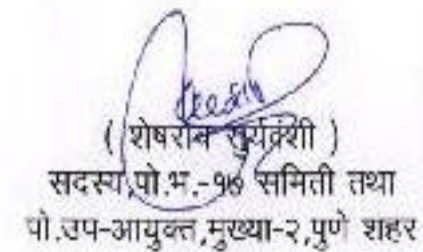 ( शेषराव सुर्यवंशी )
सदस्य,पो.भ.-१७ समिती तथा
पो.उप-आयुक्त,मुख्या-२,पुणे शहर